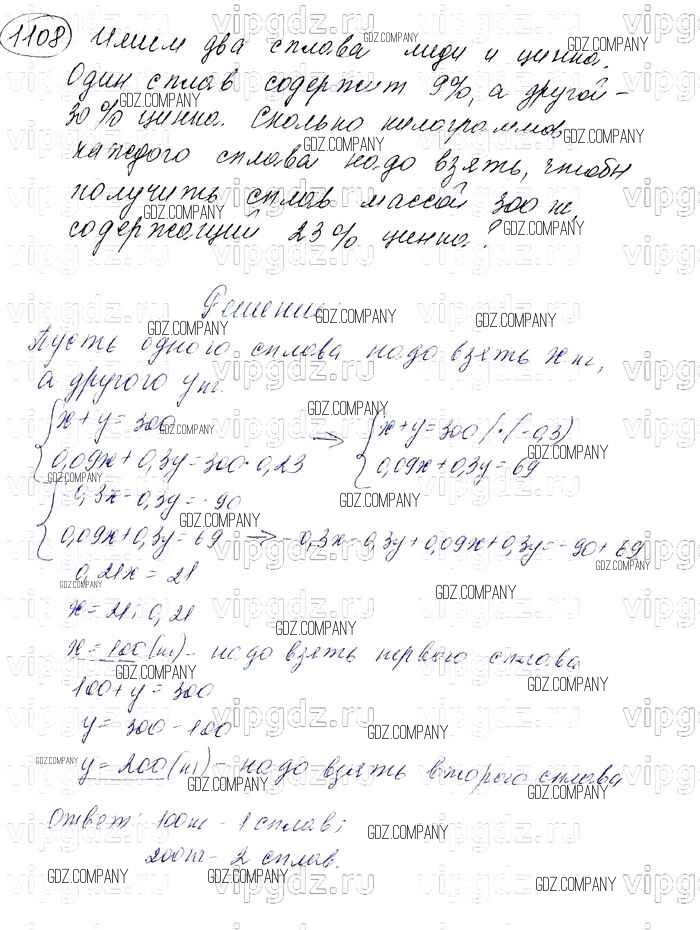 1108 Имеем два сплава меди и цинка.
Один сплав содержит 9%, а другой –
30% цинка. Сколько килограммов
каждого сплава надо взять, чтобы
получить сплав массой 300 кг,
содержащий 23% цинка?
Решение:
Пусть одного сплава надо взять x кг,
а другого y кг.
{ x + y = 300 → { x + y = 300 / · (-0,3)
0,09x + 0,3y = 300 · 0,23 0,09x + 0,3y = 69
{ -0,3x - 0,3y = -90
0,09x + 0,3y = 69 → -0,3x - 0,3y + 0,09x + 0,3y = -90 + 69
0,21x = 21
x = 21 : 0,21
x = 100 (кг) - надо взять первого сплава
100 + y = 300
y = 300 - 100
y = 200 (кг) - надо взять второго сплава
Ответ: 100кг - 1 сплав;
200кг - 2 сплав.
GDZ.COMPANY
vipgdz.ru